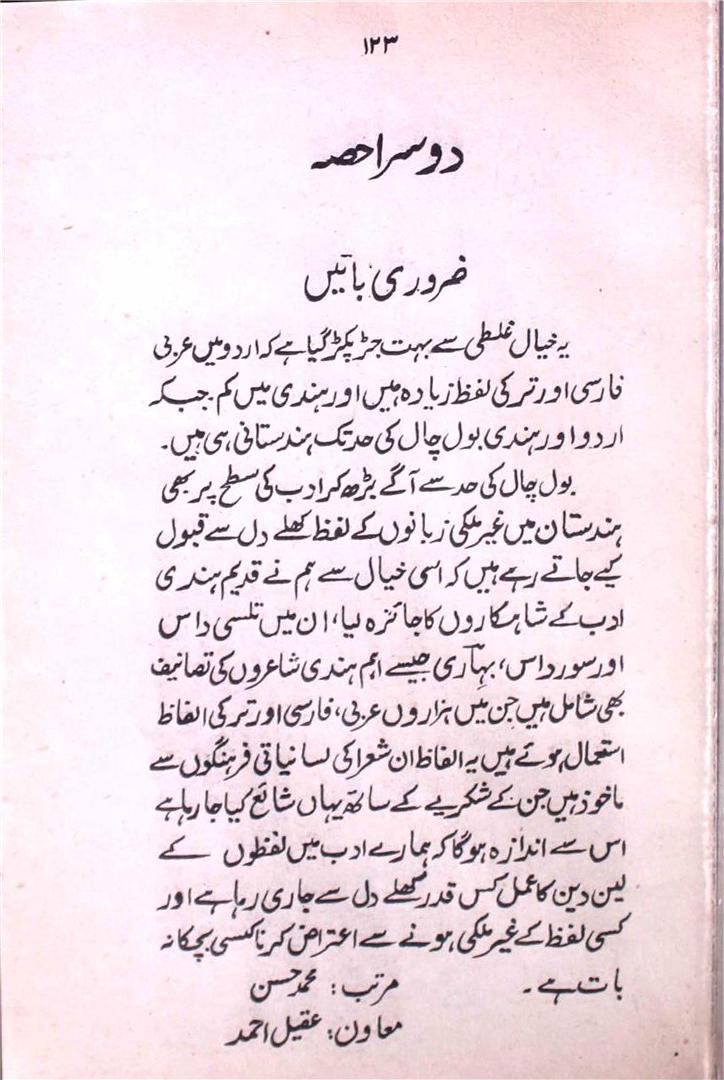 ۱۲۳
دوسرا حصہ
ضروری باتیں
یہ خیال غلطی سے بہت جڑ پکڑ گیا ہے کہ اردو میں عربی
فارسی اور ترکی لفظ زیادہ ہیں اور ہندی میں کم۔ جبکہ
اردو اور ہندی بول چال کی حد تک ہندستانی ہی ہیں۔
بول چال کی حد سے آگے بڑھ کر ادب کی سطح پر بھی
ہندستان میں غیر ملکی زبانوں کے لفظ کھلے دل سے قبول
کیے جاتے رہے ہیں کہ اسی خیال سے ہم نے قدیم ہندی
ادب کے شاہکاروں کا جائزہ لیا، ان میں تلسی داس
اور سور داس، بہاری جیسے اہم ہندی شاعروں کی تصانیف
بھی شامل ہیں جن میں ہزاروں عربی، فارسی اور ترکی الفاظ
استعمال ہوئے ہیں یہ الفاظ ان شعرا کی لسانیاتی فرہنگوں سے
ماخوذ ہیں جن کے شکریے کے ساتھ یہاں شائع کیا جا رہا ہے
اس سے اندازہ ہوگا کہ ہمارے ادب میں لفظوں کے
لین دین کا عمل کس قدر کھلے دل سے جاری رہا ہے اور
کسی لفظ کے غیر ملکی ہونے سے اعتراض کرنا کیسی بچکانہ
بات ہے۔ مرتب: محمد حسن
معاون: عقیل احمد